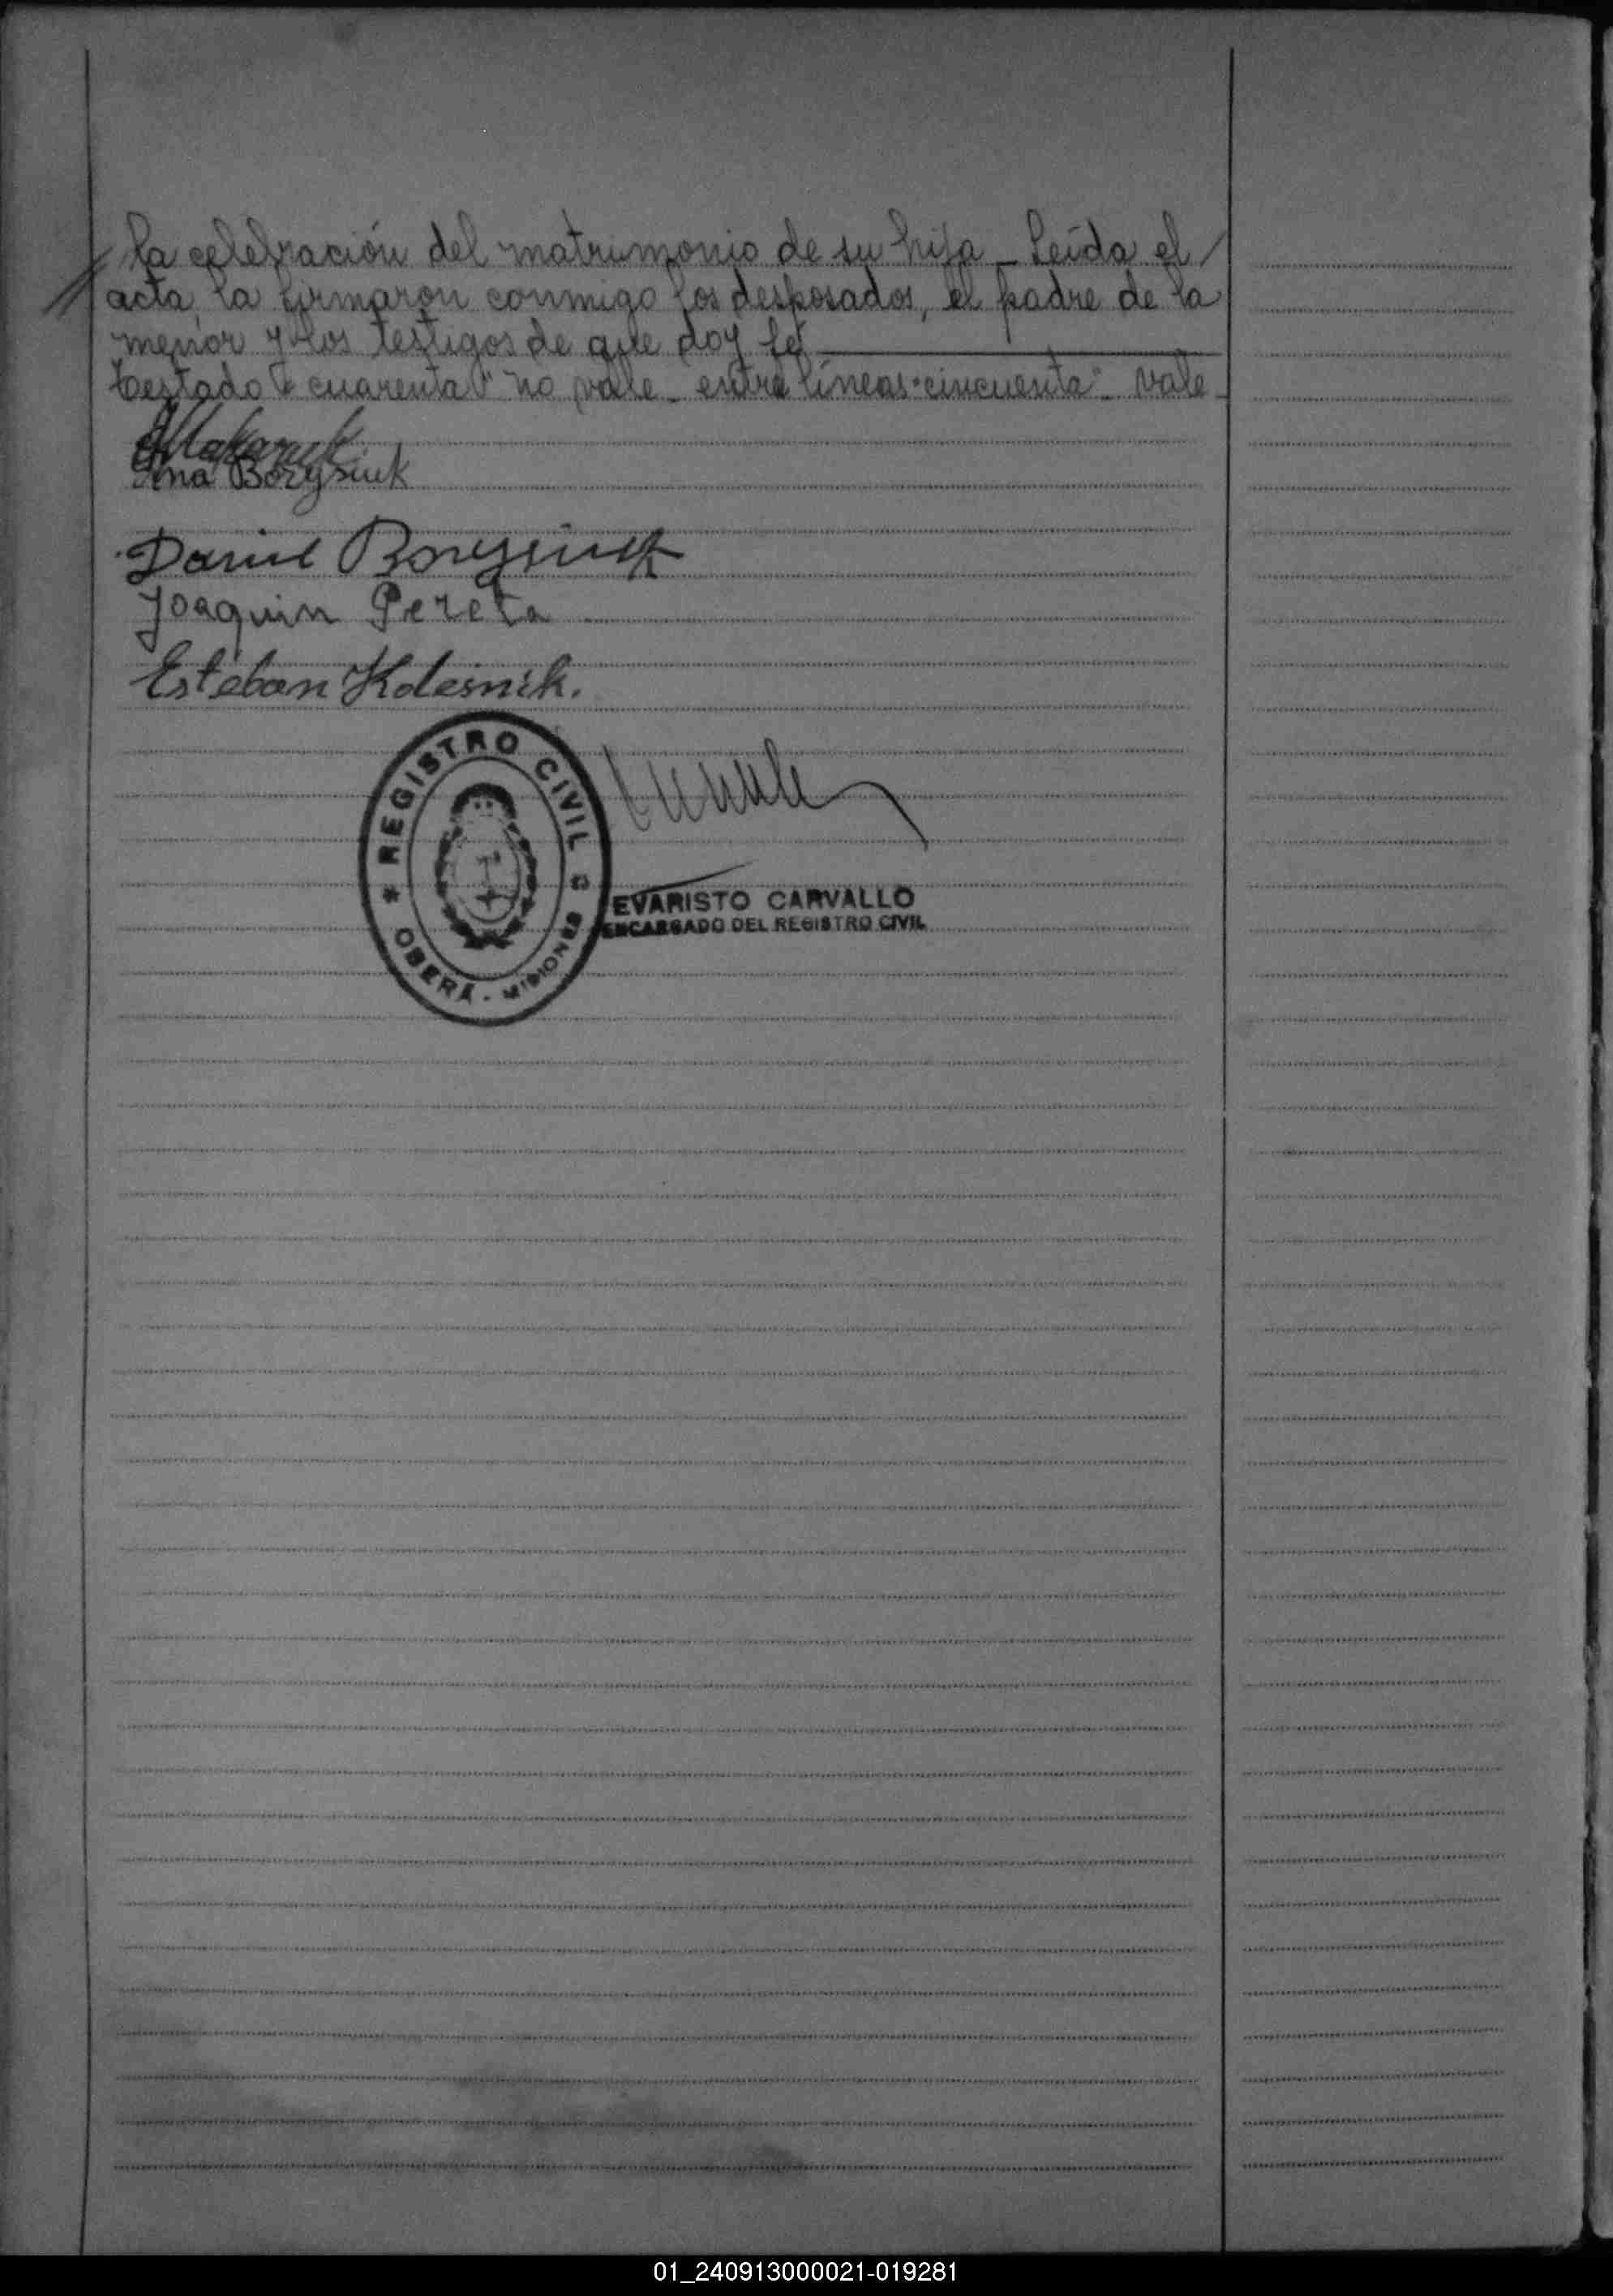 la celebración del matrimonio de su hija _ Leída el
acta la firmaron conmigo los desposados, el padre de la
menor y los testigos de que doy fé
Testado "cuarenta" no vale _ entre líneas "cincuenta" _ vale _
Makaruk
Ana Borysiuk
Daniel Borysiuk
Joaquin Pereta
Esteban Kolesnik.
* REGISTRO CIVIL *
OBERÁ - MISIONES
EVARISTO CARVALLO
ENCARGADO DEL REGISTRO CIVIL
01_240913000021-019281